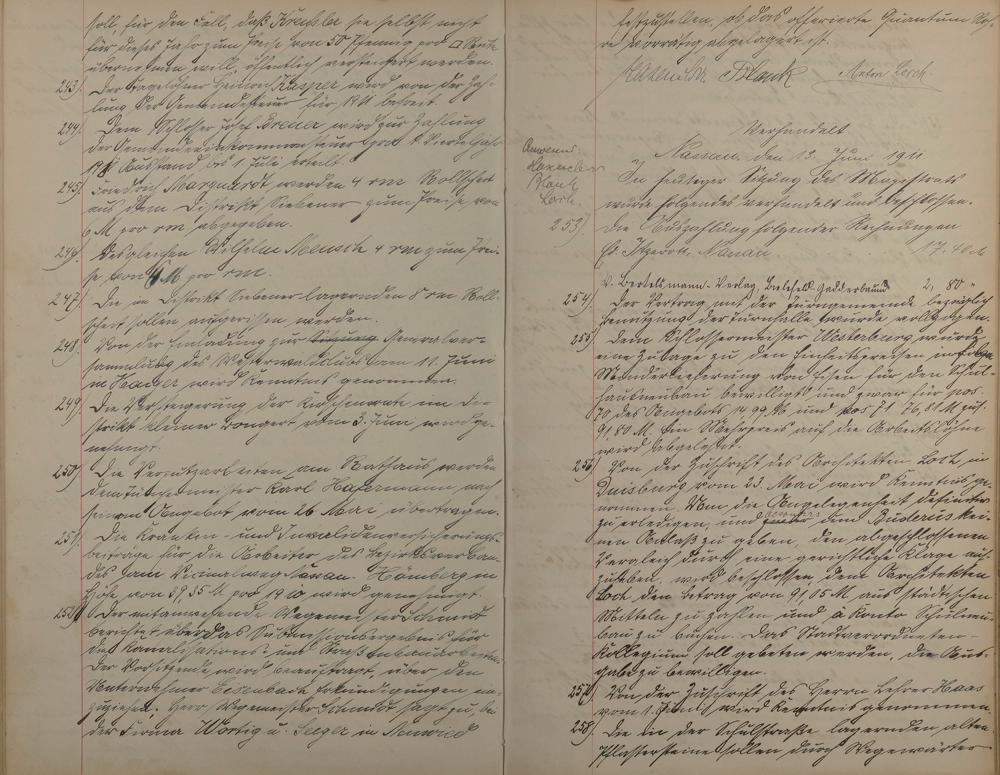 soll, für den Fall, daß Kreidler sie selbst nicht
für dieses Jahr zum Preise von 50 Pfennig pro □ Rute
übernehmen will, öffentlich versteigert werden.
243) Der Tagelöhner Heinrich Kasper wird von der Zah-
lung der Gemeindesteuer für 1911 befreit.
244) Dem Schlosser Josef Breuer wird zur Zahlung
der Gemeindeeinkommensteuer pro 4. Vierteljahr
Ausstand bis 1 Juli erteilt.
245) Friedrich Marquardt werden 4 rm Rollscheit
aus dem Distrikt Siebener zum Preise von
6 M pro rm abgegeben.
246) Desgleichen Wilhelm Mensch 4 rm zum Prei-
se von 6 M pro rm.
247) Die im Distrikt Siebener lagernden 8 rm Roll-
scheit sollen aufgerissen werden.
248) Von der Einladung zur Generalver-
sammlung des Westerwaldklubs am 11. Juni
in Haiger wird Kenntnis genommen.
249) Die Versteigerung der Kirschen im Di-
strikt kleiner Bongert vom 3. Juni wird ge-
nehmigt.
250) Die Verputzarbeiten am Rathaus werden
dem Tünchermeister Karl Hafermann nach
seinem Angebot vom 26 Mai übertragen.
251) Die Kranken- und Invalidenversicherungs-
beiträge für die Arbeiter des Bezirksverban-
des am Vicinalweg Nassau-Hömberg in
Höhe von 39,35 M pro 1910 wird genehmigt.
252) Der mitanwesende Wegemeister Schmidt
berichtet über das Submissionsergebnis für
die Kanalisations- und Straßenbauarbeiten.
Der Vorsitzende wird beauftragt, über den
Unternehmer Eisenbach Erkundigungen ein-
zuziehen. Herr Wegemeister Schmidt sagt zu, bei
der Firma Wortig u. Seeger in Neuwied
festzustellen, ob das offerierte Quantum Roh-
re vorrätig abgelagert ist.
Hasenclever Blank Anton Lorch.
Verhandelt
Nassau, den 13. Juni 1911
Anwesend:
Hasenclever
Blank
Lorch.
In heutiger Sitzung des Magistrats
wurde folgendes verhandelt und beschlossen.
253) Die Auszahlung folgender Rechnungen
Nassau 17.40 M
V. Bertelsmann-Verlag, Bielefeld-Gadderbaum 2,80 "
254) Der Vertrag mit der Turngemeinde bezüglich
Benutzung der Turnhalle wurde vollzogen.
255) Dem Schlossermeister Westerburg wurde
eine Zulage zu den Einheitspreisen infolge
Minderlieferung von Eisen für den Schul-
hausneubau bewilligt und zwar für pos.
70 des Angebots 14,99 M und pos 71. 76,81 M zus.
91,80 M. Ein Mehrpreis auf die Arbeitslöhne
wird abgelehnt.
256) Von der Zuschrift des Architekten Loch in
Duisburg vom 23. Mai wird Kenntnis ge-
nommen. Um die Angelegenheit definitiv
zu erledigen, und dem Buderus kei-
nen Anlaß zu geben, den abgeschlossenen
Vergleich durch eine gerichtliche Klage auf-
zuheben, wird beschlossen, dem Architekten
Loch den Betrag von 91,05 M aus städtischen
Mitteln zu zahlen und à Konto Schulneu-
bau zu buchen. Das Stadtverordneten-
Kollegium soll gebeten werden, die Aus-
gabe zu bewilligen.
257) Von der Zuschrift des Herrn Lehrer Haas
vom 1. Juni wird Kenntnis genommen.
258) Die in der Schulstraße lagernden alten
Pflastersteine sollen durch Wegewärter